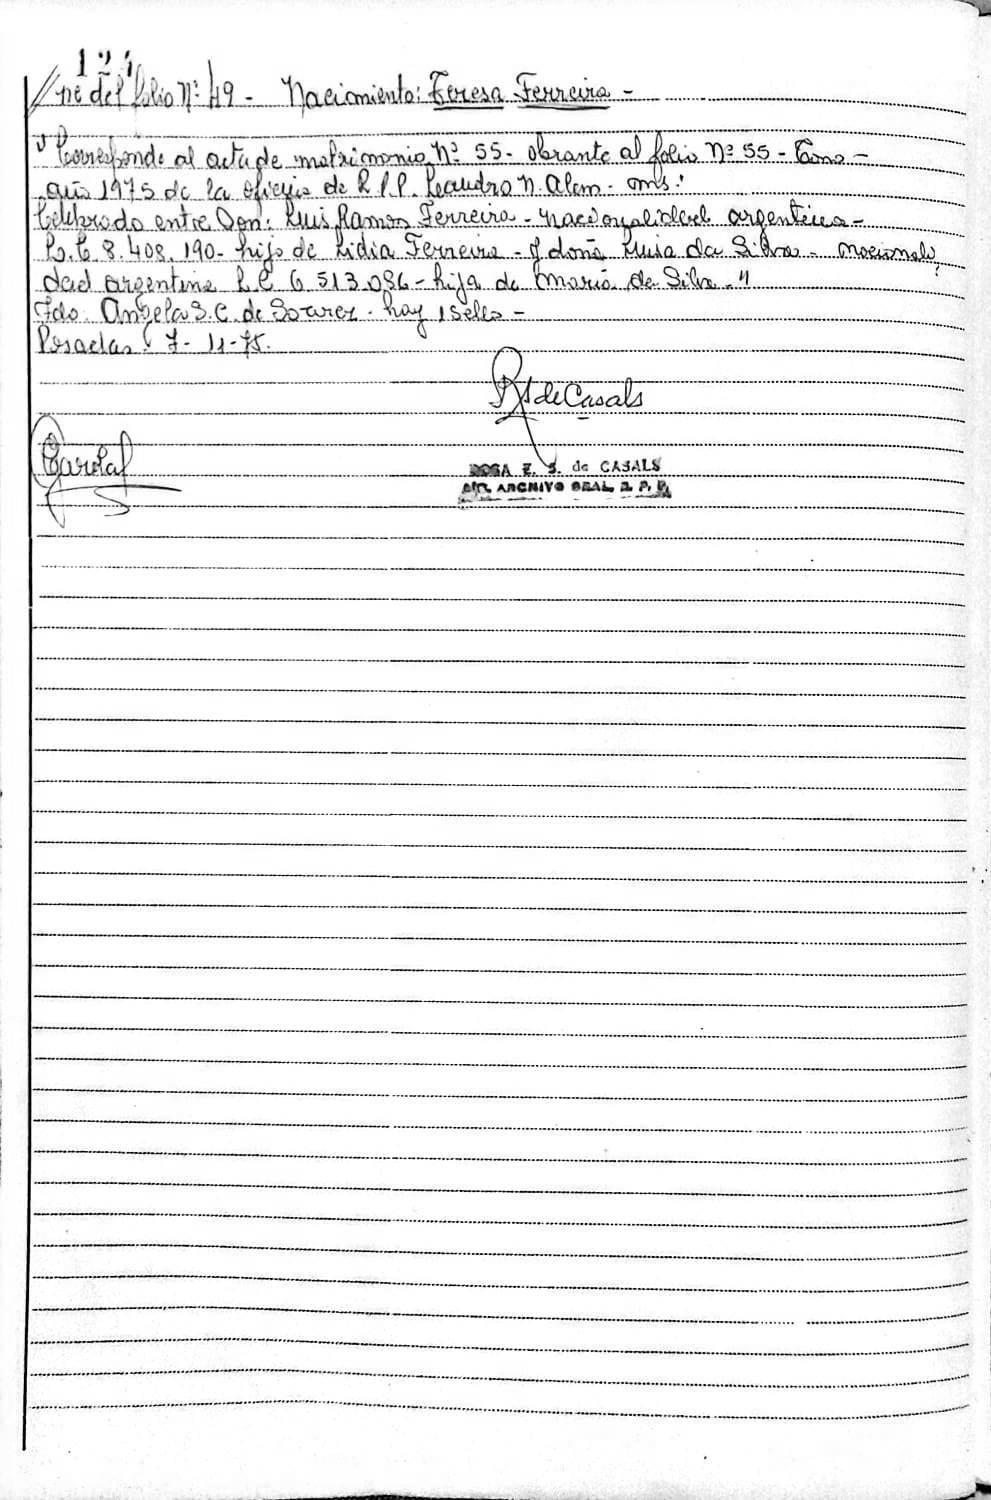 124
// ne del folio Nº 49 - Nacimiento: Teresa Ferreira -
" Corresponde al acta de matrimonio Nº 55 - obrante al folio Nº 55 - Tomo -
año 1975 de la oficina de R.P.P. Leandro N. Alem - Mnes.
Celebrado entre Don: Luis Ramon Ferreira - nacionalidad argentina -
L.E 8.408.190 - hijo de Lidia Ferreira - y doña Luisa da Silva - nacionali
dad argentina L.C 6.513.086 - hija de Maria da Silva - "
Fdo. Angela S. C. de Soarez - hay 1 sello -
Posadas 7 - 11 - 75.
RS de Casals
ROSA E. S. de CASALS
DIR. ARCHIVO GRAL. R. P. P.